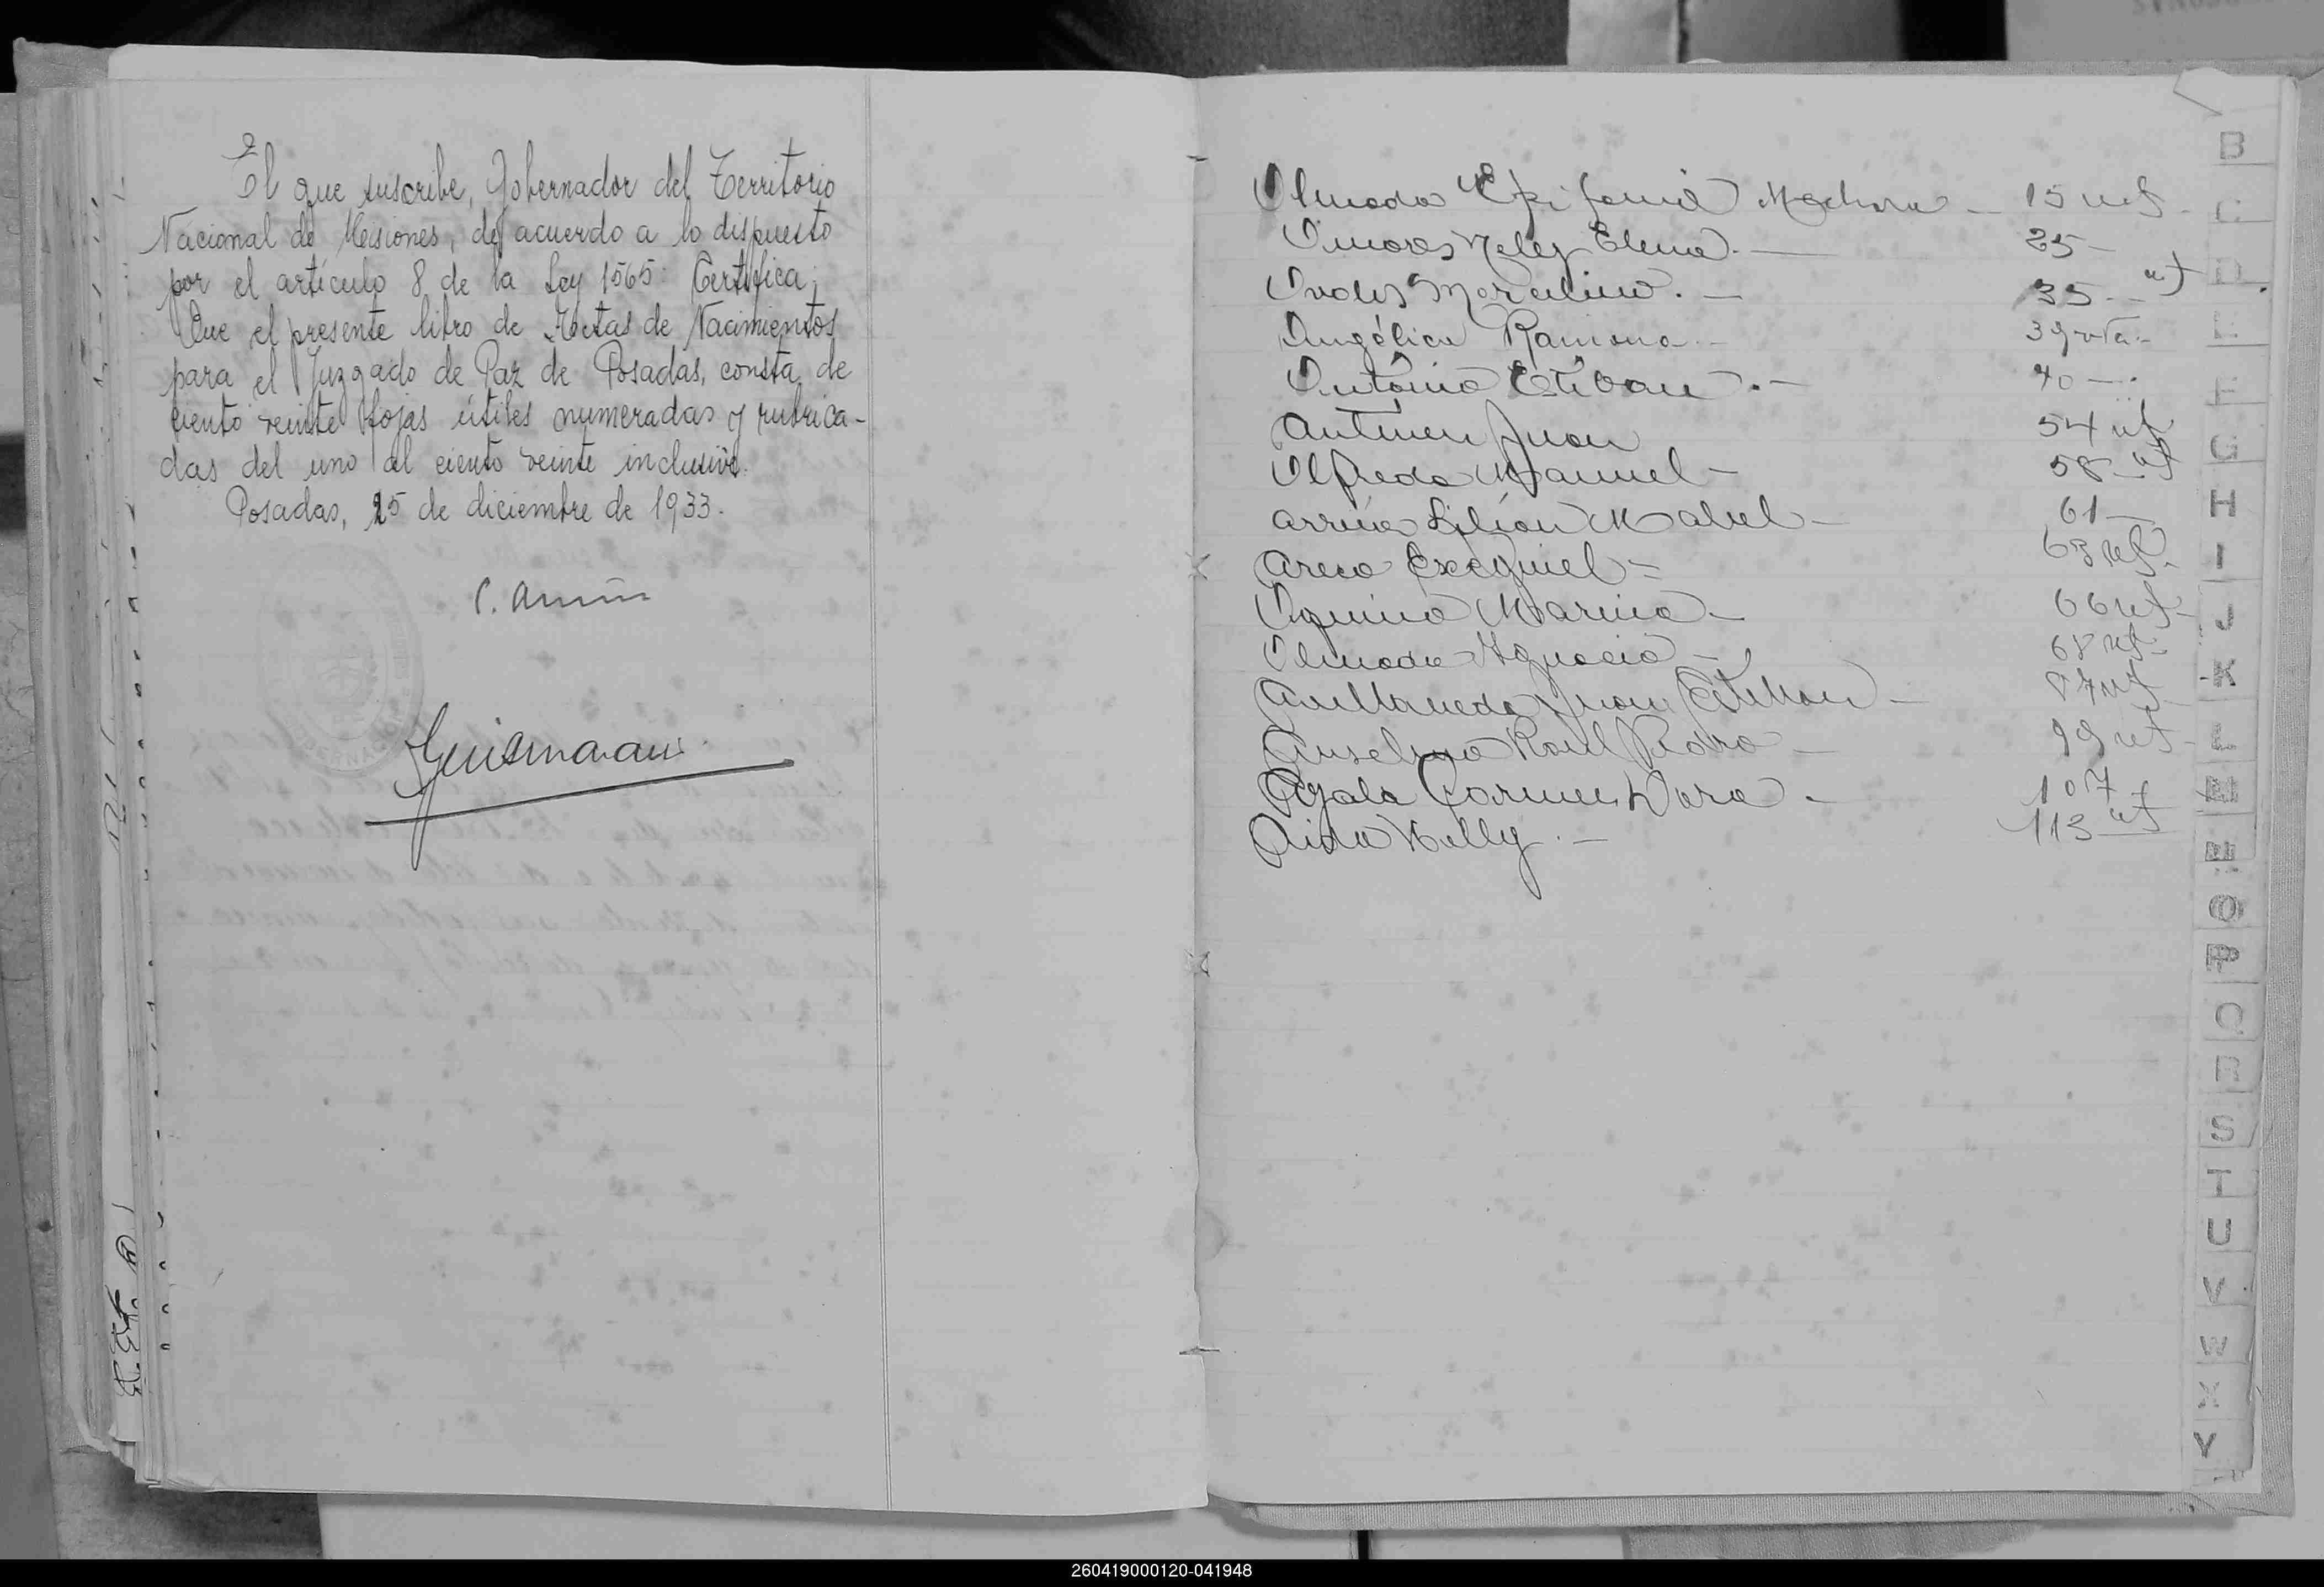 El que suscribe, Gobernador del Territorio
Nacional de Misiones, de acuerdo a lo dispuesto
por el artículo 8 de la Ley 1565: Certifica:
Que el presente libro de Actas de Nacimientos
para el Juzgado de Paz de Posadas, consta de
ciento veinte fojas útiles numeradas y rubrica-
das del uno al ciento veinte inclusive.
Posadas, 25 de diciembre de 1933.
Almada Epifania 15 vta
Elena. 25
Avalos Marcelino. 35 vta
Angélica Ramona 39 vta.
Antonio Esteban 40
Juan 54 vta
Alfredo Manuel 58 vta
Lilian Mabel 61
Areco Exequiel 63 vta
Aquino Marina 66 vta
Almada Ignacio 68 vta
Avellaneda Juan Esteban 87 vta
Anselmo Raul Pedro 99 vta
Ayala Carmen Dora 107
Aida Nelly 113 vta
B
C
D
E
F
G
H
I
J
K
L
M
N
O
P
Q
R
S
T
U
V
W
X
Y
260419000120-041948